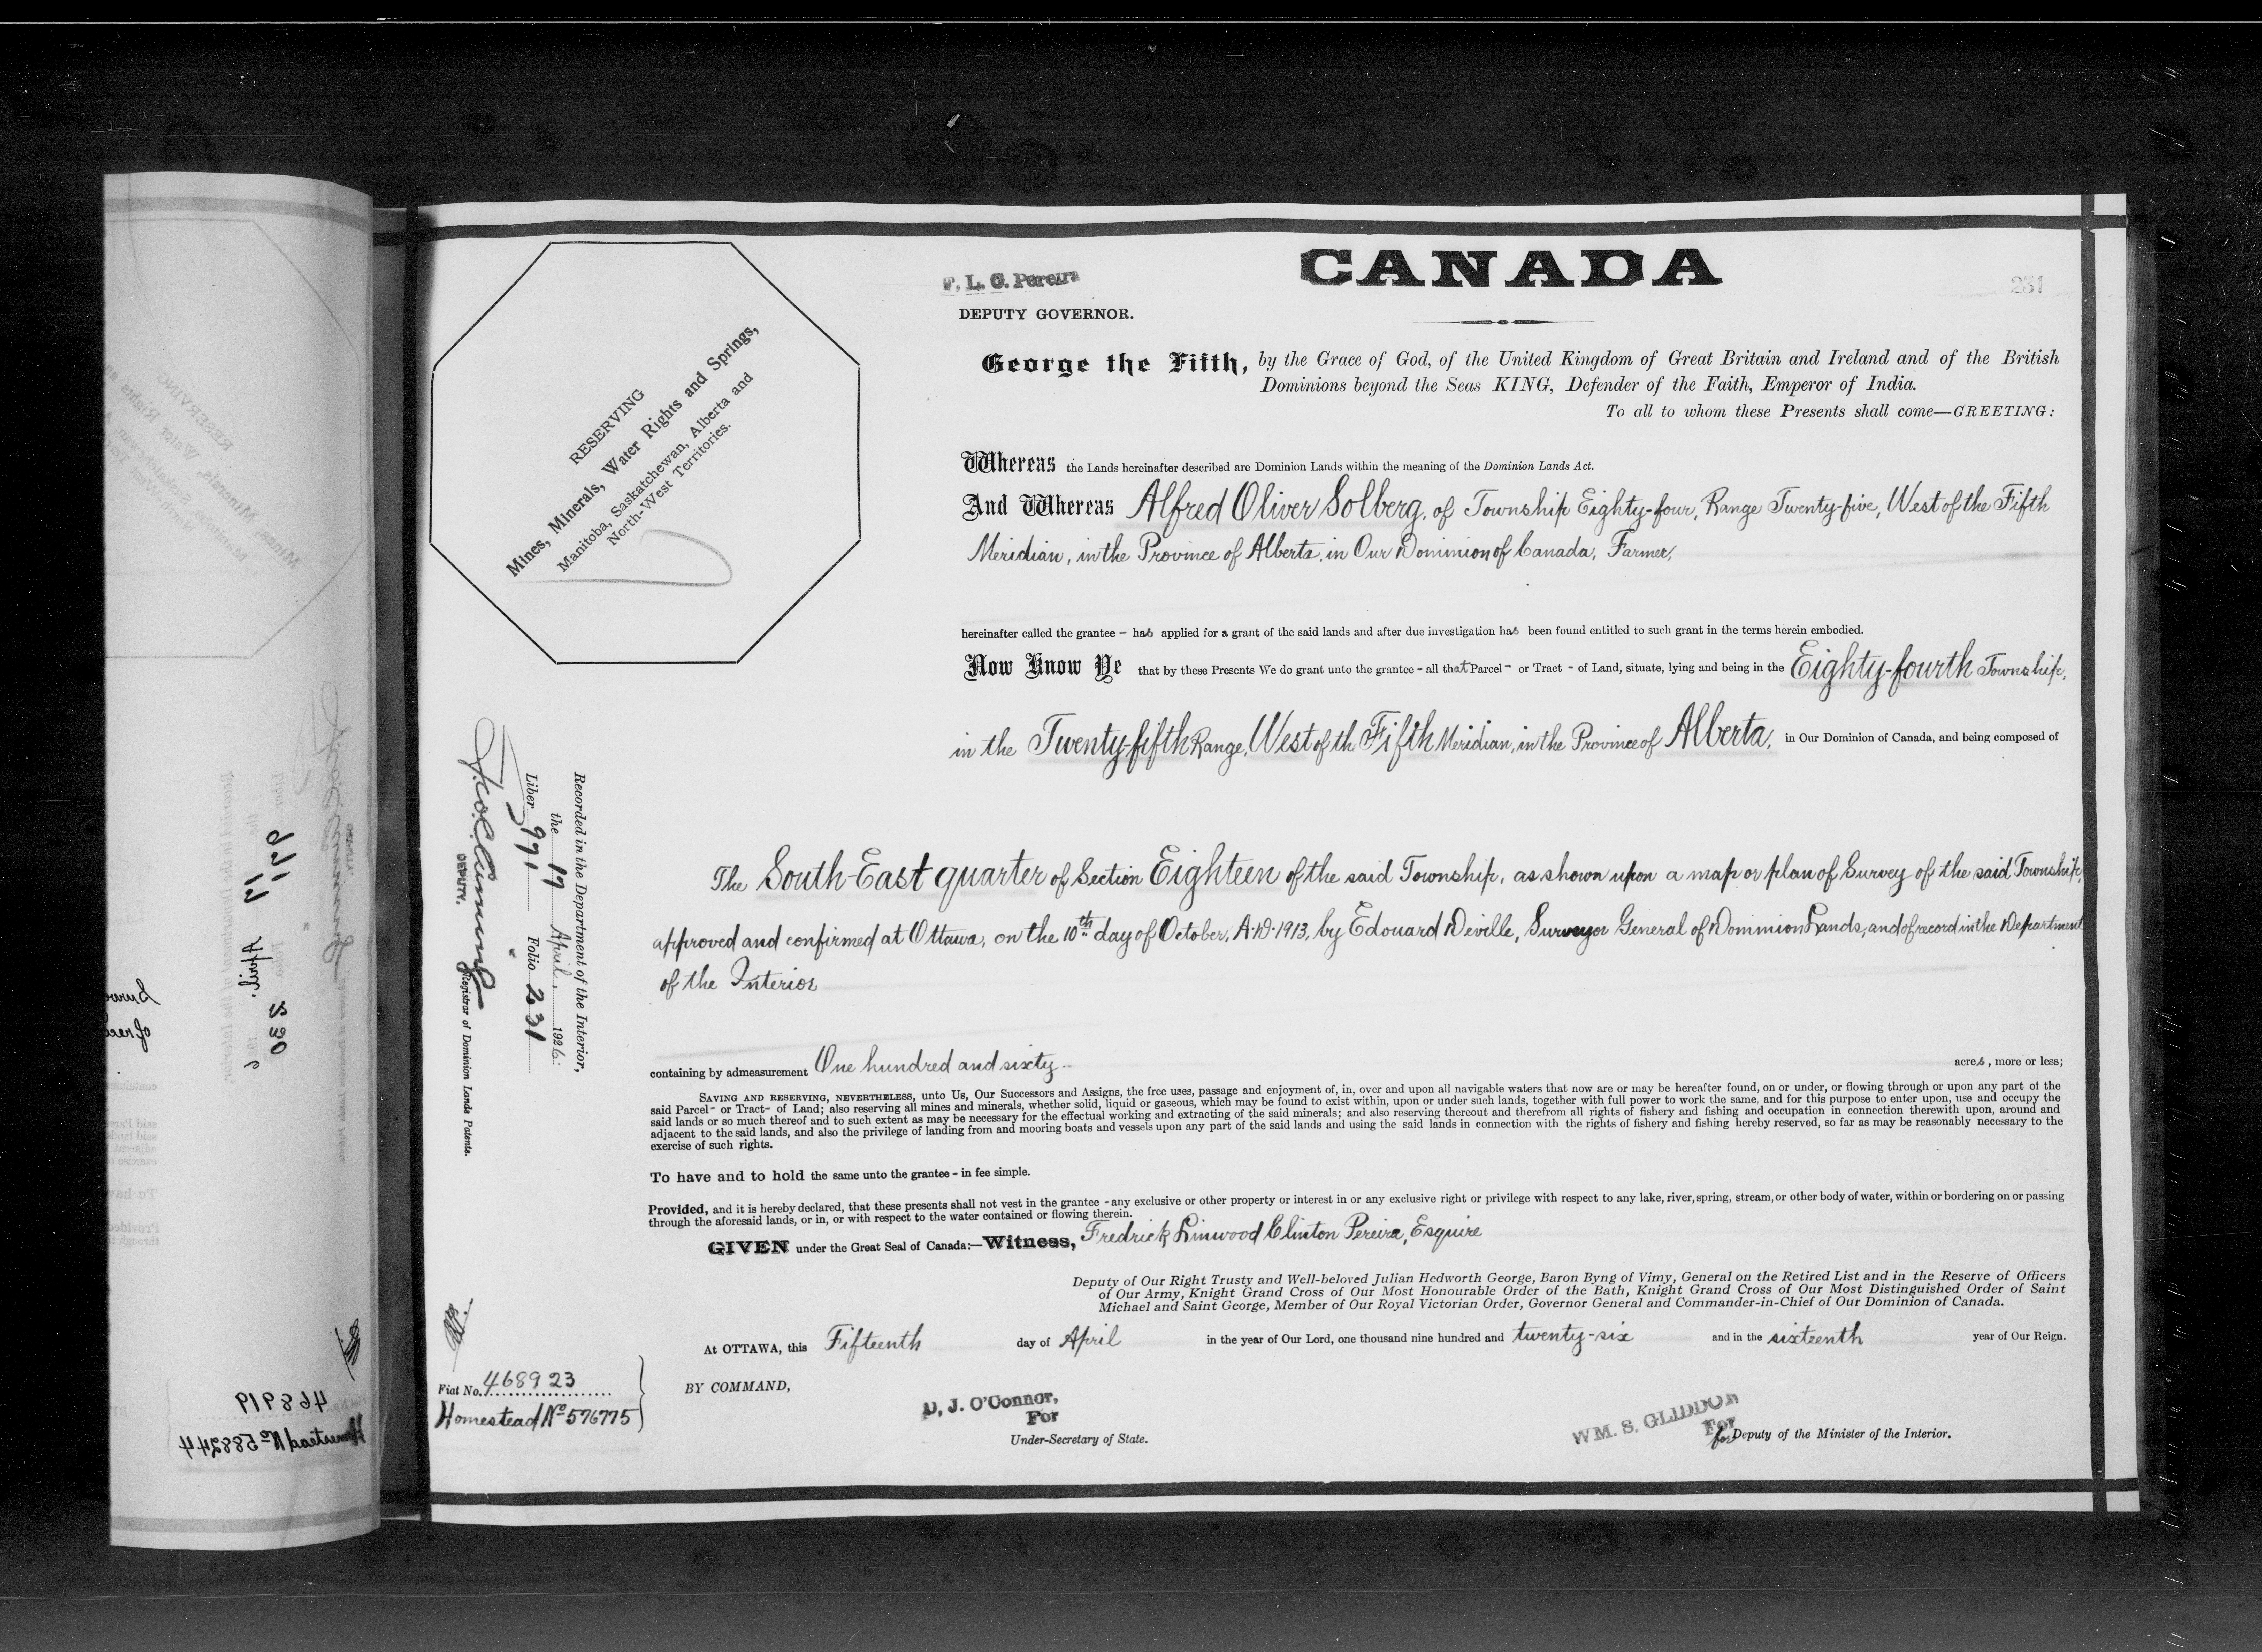 CANADA
231
F. L. C. Pereira
DEPUTY GOVERNOR.
George the Fifth, by the Grace of God, of the United Kingdom of Great Britain and Ireland and of the British
Dominions beyond the Seas KING, Defender of the Faith, Emperor of India.
To all to whom these Presents shall come—GREETING:
RESERVING
Mines, Minerals, Water Rights and Springs,
Manitoba, Saskatchewan, Alberta and
North-West Territories.
Whereas the Lands hereinafter described are Dominion Lands within the meaning of the Dominion Lands Act.
And Whereas Alfred Oliver Solberg, of Township Eighty-four, Range Twenty-five, West of the Fifth
Meridian, in the Province of Alberta, in Our Dominion of Canada, Farmer,
hereinafter called the grantee - has applied for a grant of the said lands and after due investigation has been found entitled to such grant in the terms herein embodied.
Now Know Ye that by these Presents We do grant unto the grantee - all that Parcel - or Tract - of Land, situate, lying and being in the Eighty-fourth Township,
in the Twenty-fifth Range, West of th Fifth Meridian, in the Province of Alberta, in Our Dominion of Canada, and being composed of
The South-East quarter of Section Eighteen of the said Township, as shown upon a map or plan of Survey of the said Township,
approved and confirmed at Ottawa, on the 10th day of October, A.D. 1913, by Edouard Deville, Surveyor General of Dominion Lands, and of record in the Department
of the Interior
containing by admeasurement One hundred and sixty acres, more or less;
SAVING AND RESERVING, NEVERTHELESS, unto Us, Our Successors and Assigns, the free uses, passage and enjoyment of, in, over and upon all navigable waters that now are or may be hereafter found, on or under, or flowing through or upon any part of the
said Parcel - or Tract - of Land; also reserving all mines and minerals, whether solid, liquid or gaseous, which may be found to exist within, upon or under such lands, together with full power to work the same, and for this purpose to enter upon, use and occupy the
said lands or so much thereof and to such extent as may be necessary for the effectual working and extracting of the said minerals; and also reserving thereout and therefrom all rights of fishery and fishing and occupation in connection therewith upon, around and
adjacent to the said lands, and also the privilege of landing from and mooring boats and vessels upon any part of the said lands and using the said lands in connection with the rights of fishery and fishing hereby reserved, so far as may be reasonably necessary to the
exercise of such rights.
To have and to hold the same unto the grantee - in fee simple.
Provided, and it is hereby declared, that these presents shall not vest in the grantee - any exclusive or other property or interest in or any exclusive right or privilege with respect to any lake, river, spring, stream, or other body of water, within or bordering on or passing
through the aforesaid lands, or in, or with respect to the water contained or flowing therein.
GIVEN under the Great Seal of Canada:—Witness, Fredrick Linwood Clinton Pereira, Esquire
Deputy of Our Right Trusty and Well-beloved Julian Hedworth George, Baron Byng of Vimy, General on the Retired List and in the Reserve of Officers
of Our Army, Knight Grand Cross of Our Most Honourable Order of the Bath, Knight Grand Cross of Our Most Distinguished Order of Saint
Michael and Saint George, Member of Our Royal Victorian Order, Governor General and Commander-in-Chief of Our Dominion of Canada.
At OTTAWA, this Fifteenth day of April in the year of Our Lord, one thousand nine hundred and twenty-six and in the sixteenth year of Our Reign.
BY COMMAND,
D. J. O'Connor,
For
Under-Secretary of State.
WM. S. GLIDDON
For
for Deputy of the Minister of the Interior.
Recorded in the Department of the Interior,
the 17 April, 1926:
Liber 991 Folio 231
DEPUTY. Registrar of Dominion Lands Patents.
Fiat No. 468923
Homestead No 576775
468919
Homestead No 588244